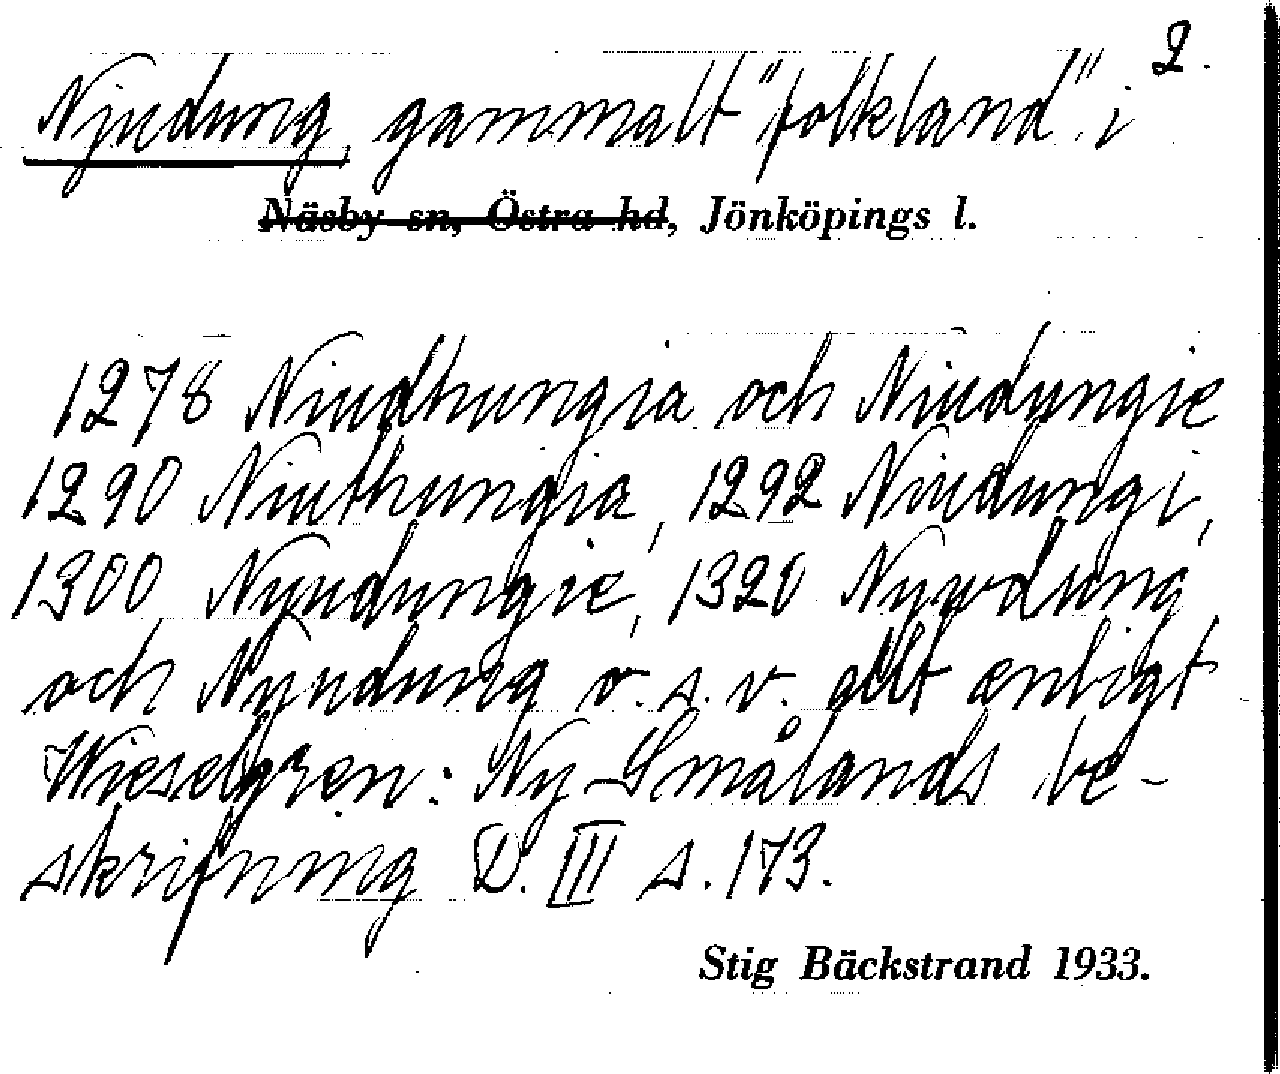 2.
Njudung, gammalt "folkland" i
Näsby sn, Östra hd, Jönköpings l.
1278 Niudhungia och Niudyngie
1290 Niuthungia, 1292 Niudungi,
1300 Nyudungie, 1320 Nywdung
och Nyudung o.s.v. allt enligt
Wieselgren: Ny Smålands be-
skrifning D. III s. 173.
Stig Bäckstrand 1933.